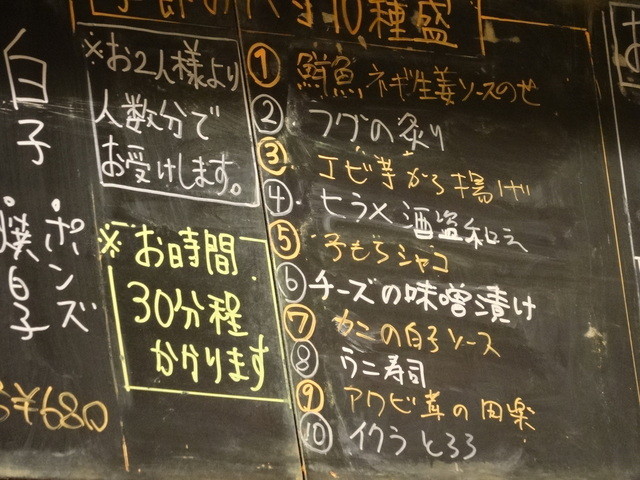 10種盛
※お2人様より
人数分で
お受けします。
※お時間
30分程
かかります
① 鮪魚 ネギ生姜ソースのせ
② フグの炙り
③ エビ芋から揚げ
④ ヒラメ酒盗和え
⑤ 子もちシャコ
⑥ チーズの味噌漬け
⑦ カニの白子ソース
⑧ ウニ寿司
⑨ アワビ茸の田楽
⑩ イクラとろろ
白子
ポンズ
白子
¥680